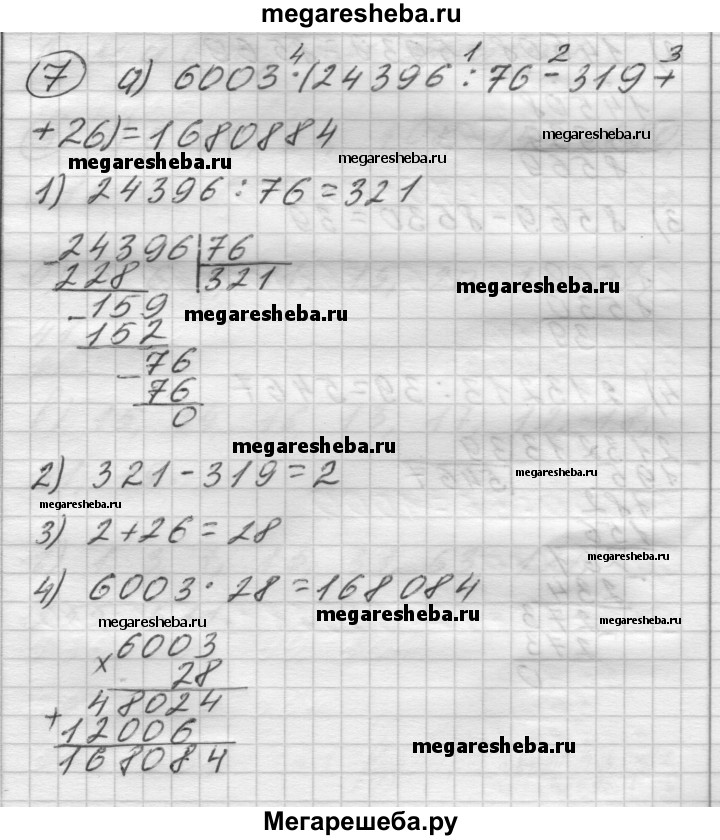 megaresheba.ru
7 а) 6003 ⁴· (24396 ¹: 76 ²- 319 ³+
+ 26) = 1680884
megaresheba.ru megaresheba.ru megaresheba.ru
1) 24396 : 76 = 321
- 24396 | 76
228 | 321
megaresheba.ru
- 159
megaresheba.ru
152
- 76
76
0
megaresheba.ru
2) 321 - 319 = 2
megaresheba.ru
megaresheba.ru
3) 2 + 26 = 28
megaresheba.ru
4) 6003 · 28 = 168084
megaresheba.ru megaresheba.ru
× 6003
28
+ 48024
12006
168084
megaresheba.ru
Мегарешеба.ру